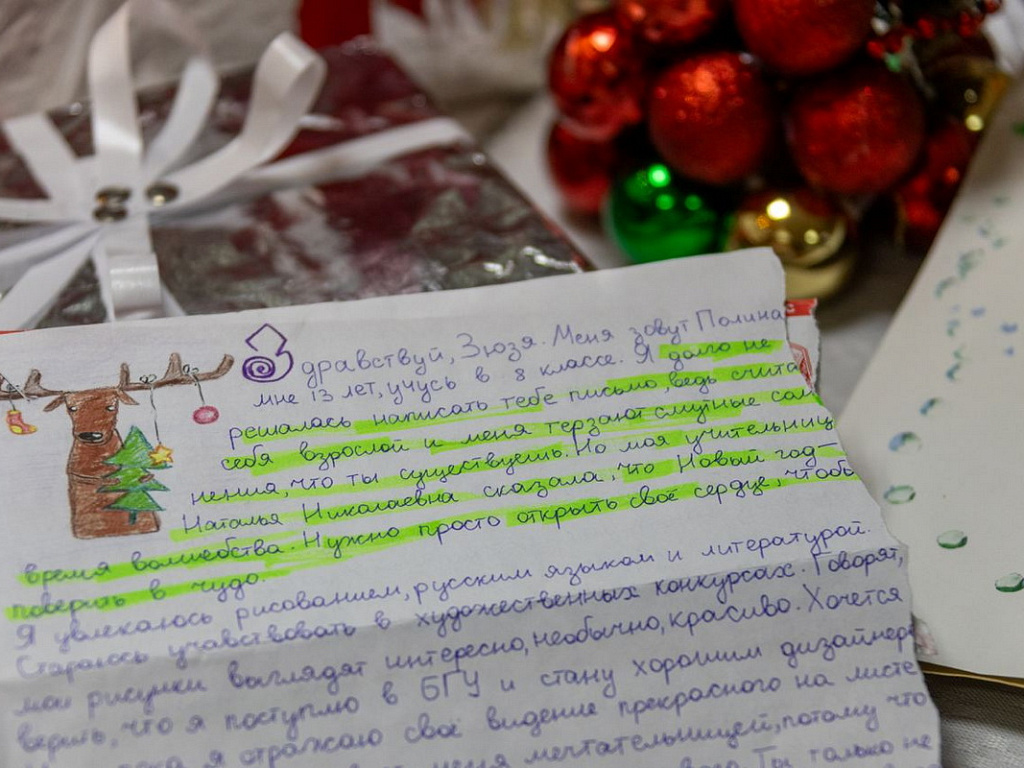 Здравствуй, Зюзя. Меня зовут Полина
мне 13 лет, учусь в 8 классе. Я долго не
решалась написать тебе письмо, ведь счита
себя взрослой и меня терзают смутные сом
нения, что ты существуешь. Но моя учительниц
Наталья Николаевна сказала, что Новый год –
время волшебства. Нужно просто открыть своё сердце, чтобы
поверить в чудо.
Я увлекаюсь рисованием, русским языком и литературой.
Стараюсь учавствовать в художественных конкурсах. Говорят,
мои рисунки выглядят интересно, необычно, красиво. Хочется
верить, что я поступлю в БГУ и стану хорошим дизайнер
я отражаю своё видение прекрасного на листе
меня мечтательницей, потому что
Ты только не